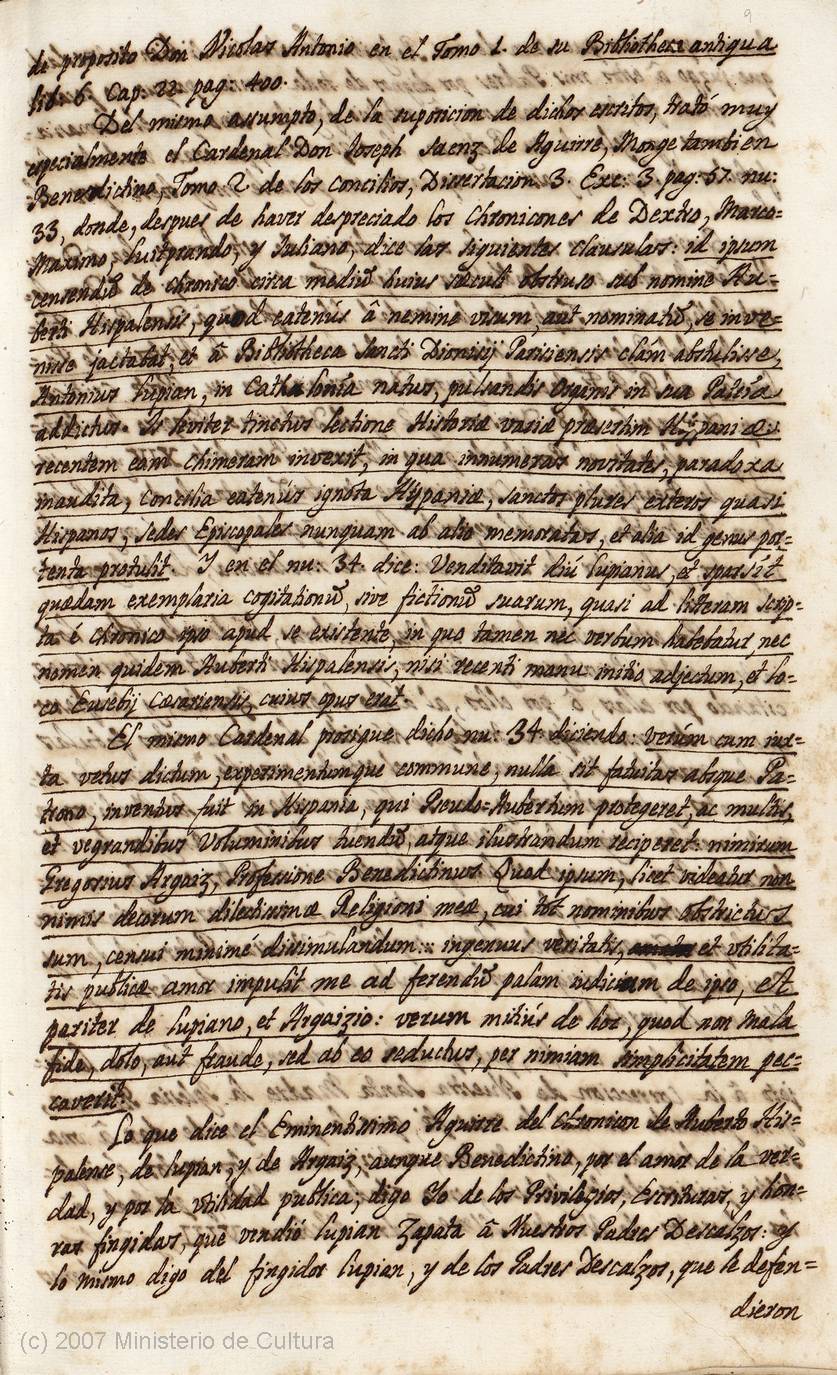 9
de proposito Don Nicolas Antonio en el Tomo 1. de su Bibliotheca antiqua
lib. 6. Cap: 22 pag: 400.
Del mismo assumpto, de la suposicion de dichos escritos, trató muy
especialmente el Cardenal Don Joseph Saenz de Aguirre, Monge tambien
Benedictino, Tomo 2. de los Concilios, Dissertacion 3. Exc: 3. pag: 57. nu:
33, donde, despues de haver despreciado los Chronicones de Dextro, Marco=
Maximo, Luitprando, y Juliano, dice las siguientes clausulas: id ipsum
censendũ de Chronico circa mediũ huius sæculi obtruso sub nomine Au=
berti Hispalensis, quod eatenús â nemine visum, aut nominatũ, se inve=
nisse jactabat, et â Bibliotheca Sancti Dionisij Parisiensis clám abstulisse,
Antonius Lupian, in Cathalonia natus, pulsandis Organis in sua Patria
addictus. Is leviter tinctus lectione Historiæ variæ præsertim Hispaniæ,
recentem eam chimeram invexit, in qua innumeras novitates, paradoxa
inaudita, Concilia eatenús ignota Hypaniæ, sanctos plures exteros quasi
Hispanos, sedes Episcopales nunquam ab alio memoratas, et alia id genus por=
tenta protulit. Y en el nu: 34. dice: Venditavit diú Lupianus, et sparsit
quædam exemplaria cogitationũ, sive fictionũ suarum, quasi ad litteram scrip=
ta é chronico ipso apud se existente, in quo tamen nec verbum habebatur, nec
nomen quidem Auberti Hispalensis, nisi recenti manu initio adjectum, et lo=
co Eusebij Cæsariensis, cuius opus erat
El mismo Cardenal prosigue dicho nu: 34. diciendo: verúm cum iux=
ta vetus dictum, experimentumque commune, nulla sit fatuitas absque Pa=
trono, inventus fuit in Hispania, qui Pseudo=Aubertum protegeret, ac multis,
et vegrandibus Voluminibus tuendũ, atque ilustrandum reciperet: nimirum
Gregorius Argaiz, Professione Benedictinus. Quod ipsum, licet videatur non
nimis decorum dilectissimæ Religioni meæ, cui tot nominibus obstrictus
sum, censui minimé dissimulandum: ingenuus veritatis, et utilita=
tis publicæ amor impulit me ad ferendũ palam iudicium de ipso, et
pariter de Lupiano, et Argaizio: verum mitiús de hoc, quod non mala
fide, dolo, aut fraude, sed ab eo seductus, per nimiam simplicitatem pec=
caverit.
Lo que dice el Eminentissimo Aguirre del Chronicon de Auberto His=
palense, de Lupian, y de Argaiz, aunque Benedictino, por el amor de la ver=
dad, y por la utilidad publica; digo Yo de los Privilegios, Escrituras, y hon=
ras fingidas, que vendió Lupian Zapata â Nuestros Padres Descalzos: y
lo mismo digo del fingidor Lupian, y de los Padres Descalzos, que le defen=
dieron
(c) 2007 Ministerio de Cultura